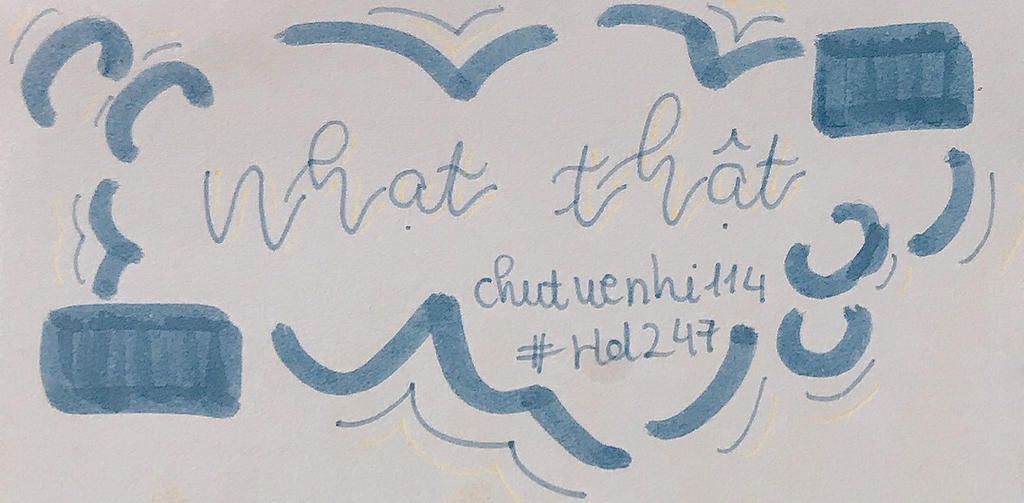 Nhạt thật
chutuenhi114
#Hd247